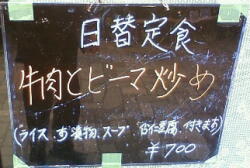 日替定食
牛肉とピーマ炒め
(ライス、お漬物、スープ 杏仁豆腐 付きます)
￥700